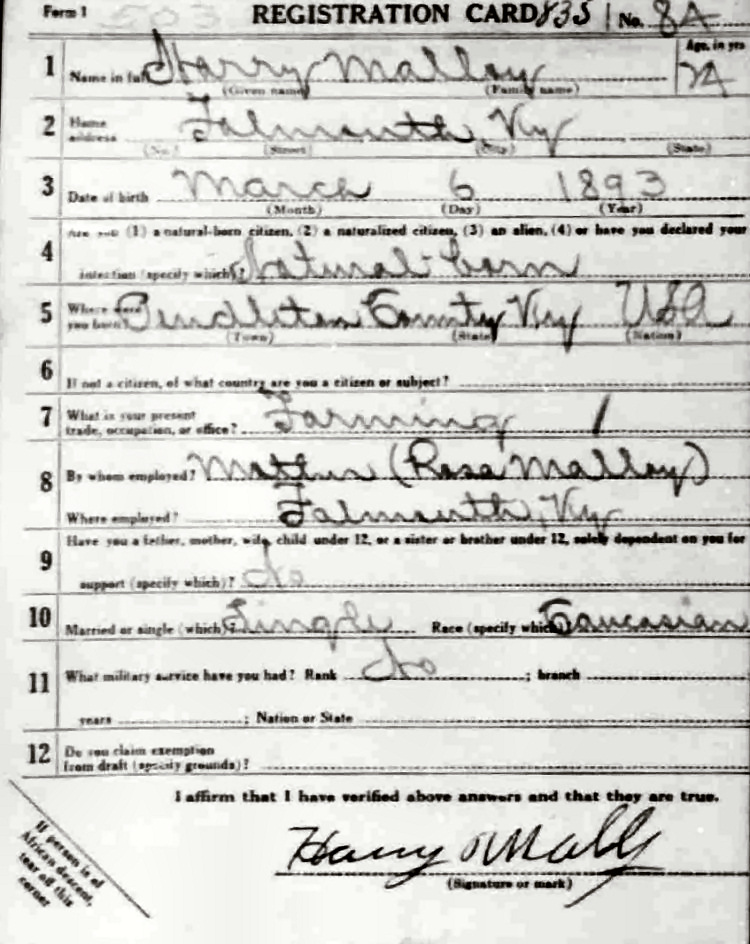 Form 1 REGISTRATION CARD 835 | No. 84
1 Name in full Harry Malloy Age, in yrs 24
(Given name) (Family name)
2 Home address Falmouth, Ky
(No.) (Street) (City) (State)
3 Date of birth March 6 1893
(Month) (Day) (Year)
Are you (1) a natural-born citizen, (2) a naturalized citizen, (3) an alien, (4) or have you declared your
4 intention (specify which)? Natural born
5 Where were you born? Pendleton County Ky USA
(Town) (State) (Nation)
6 If not a citizen, of what country are you a citizen or subject?
7 What is your present trade, occupation, or office? Farming 1
8 By whom employed? Mother (Rosa Malloy)
Where employed? Falmouth, Ky
9 Have you a father, mother, wife, child under 12, or a sister or brother under 12, solely dependent on you for
support (specify which)? No
10 Married or single (which)? Single Race (specify which)? Caucasian
11 What military service have you had? Rank No ; branch
years ; Nation or State
12 Do you claim exemption
from draft (specify grounds)?
I affirm that I have verified above answers and that they are true.
Harry Malloy
(Signature or mark)
If person is of
African descent,
tear off this
corner